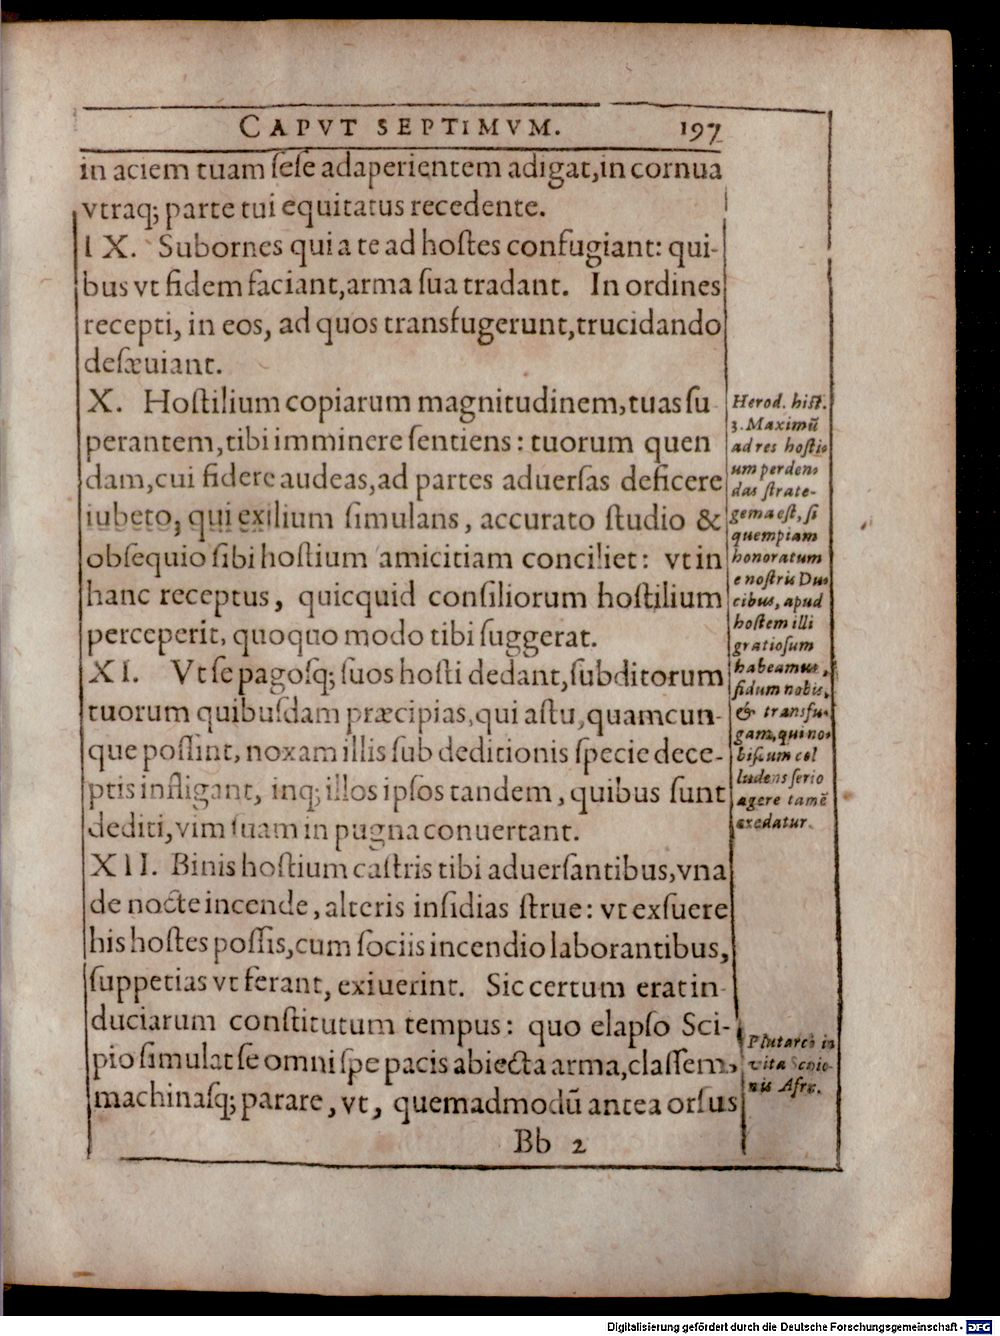 CAPVT SEPTIMVM. 197
in aciem tuam ſeſe adaperientem adigat, in cornua
vtraq; parte tui equitatus recedente.
IX. Subornes qui a te ad hoſtes confugiant: qui-
bus vt fidem faciant, arma ſua tradant. In ordines
recepti, in eos, ad quos transfugerunt, trucidando
deſæuiant.
X. Hoſtilium copiarum magnitudinem, tuas ſu
perantem, tibi imminere ſentiens: tuorum quen
dam, cui fidere audeas, ad partes aduerſas deficere
iubeto, qui exilium ſimulans, accurato ſtudio &
obſequio ſibi hoſtium amicitiam conciliet: vt in
hanc receptus, quicquid conſiliorum hoſtilium
perceperit, quoquo modo tibi ſuggerat.
XI. Vt ſe pagoſq; ſuos hoſti dedant, ſubditorum
tuorum quibuſdam præcipias, qui aſtu, quamcun-
que poſſint, noxam illis ſub deditionis ſpecie dece-
ptis infligant, inq; illos ipſos tandem, quibus ſunt
dediti, vim ſuam in pugna conuertant.
XII. Binis hoſtium caſtris tibi aduerſantibus, vna
de nocte incende, alteris inſidias ſtrue: vt exſuere
his hoſtes poſſis, cum ſociis incendio laborantibus,
ſuppetias vt ferant, exiuerint. Sic certum erat in-
duciarum conſtitutum tempus: quo elapſo Sci-
pio ſimulat ſe omni ſpe pacis abiecta arma, claſſem,
machinaſq; parare, vt, quemadmodū antea orſus
Bb 2
Herod. hiſt.
3. Maximū
ad res hoſti-
um perden-
das ſtrate-
gema eſt, ſi
quempiam
honoratum
e noſtris Du-
cibus, apud
hoſtem illi
gratioſum
habeamus,
fidum nobis,
& transfu-
gam, qui no-
biſcum col
ludens ſerio
agere tamē
credatur.
Plutarc. in
vita Scipio-
nis Afrc.
Digitalisierung gefördert durch die Deutsche Forschungsgemeinschaft - DFG